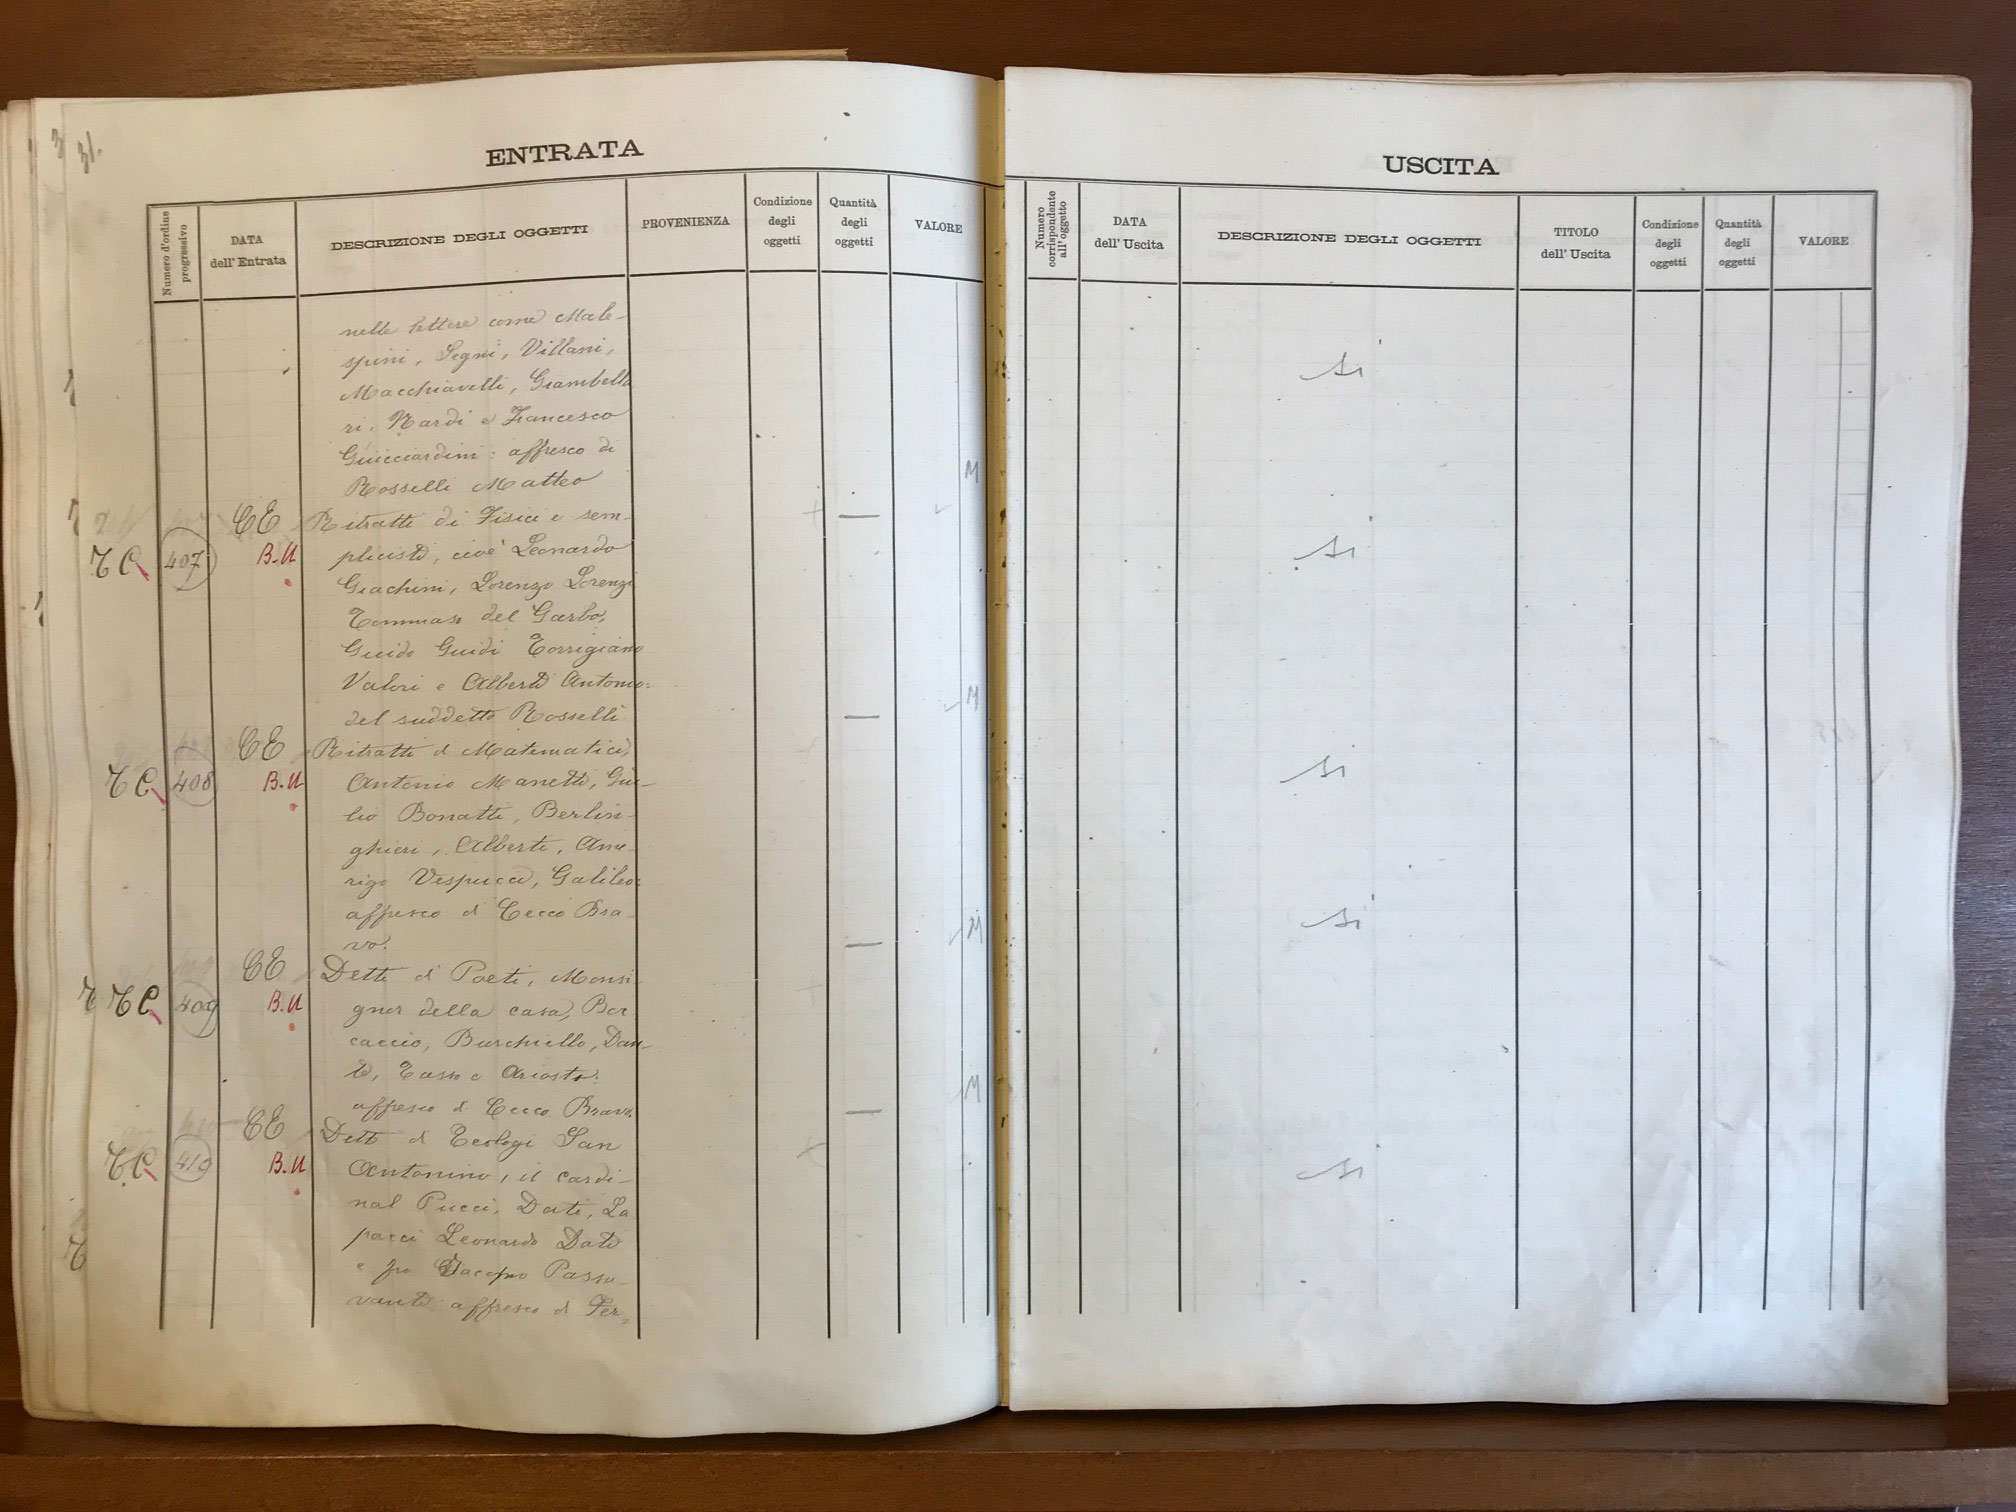 31.
ENTRATA
Numero d'ordine progressivo
DATA dell' Entrata
DESCRIZIONE DEGLI OGGETTI
PROVENIENZA
Condizione degli oggetti
Quantità degli oggetti
VALORE
nelle lettere come Male-
spini, Segni, Villani,
Macchiavelli, Giambulla
ri, Nardi e Francesco
Guicciardini: affresco di
Rosselli Matteo
M
CE Ritratti di Fisici e sem-
TC 407 B.U plicisti, cioè Leonardo
Giachini, Lorenzo Lorenzi
Tommaso del Garbo,
Guido Guidi Torrigiano
Valori e Alberti Antonio:
del suddetto Rosselli
M
CE Ritratti di Matematici
TC 408 B.U Antonio Manetti, Giu-
lio Bonatti, Berlin-
ghieri, Alberti, Ame-
rigo Vespucci, Galileo:
affresco di Cecco Bra-
vo.
M
CE Detti di Poeti, Monsi
TC 409 B.U gnor della casa, Boc
caccio, Burchiello, Dan-
te, Tasso e Ariosto:
affresco di Cecco Bravo.
M
CE Detti di Teologi San
T.C. 410 B.U Antonino, il cardi-
nal Pucci, Dati, La
pacci Leonardo Dati
e fra Jacopo Passa-
vanti: affresco di Fer=
USCITA
Numero corrispondente all'oggetto
DATA dell' Uscita
DESCRIZIONE DEGLI OGGETTI
TITOLO dell' Uscita
Condizione degli oggetti
Quantità degli oggetti
VALORE
si
si
si
si
si